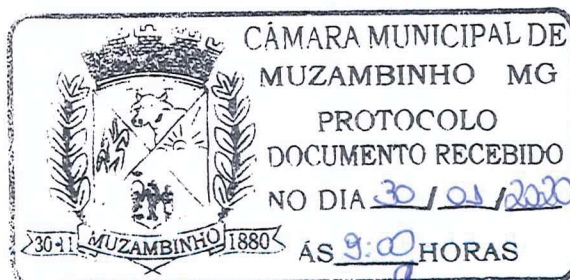 CÂMARA MUNICIPAL DE
MUZAMBINHO MG
PROTOCOLO
DOCUMENTO RECEBIDO
NO DIA 30 / 01 / 2020
ÁS 9:00 HORAS
30-11 MUZAMBINHO 1880